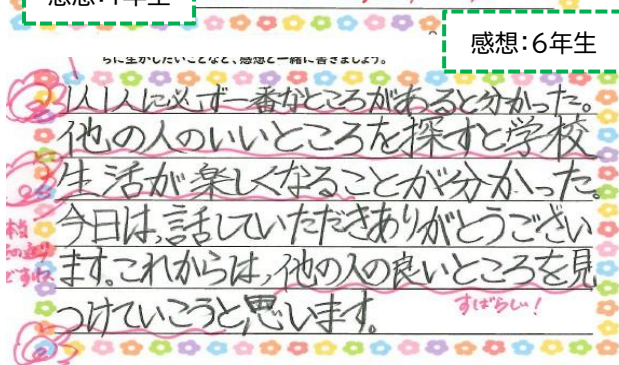 感想:6年生
ちに生かしたいことなど、感想と一緒に書きましょう。
1人1人に必ず一番なところがあると分かった。
他の人のいいところを探すと学校
生活が楽しくなることが分かった。
今日は、話していただきありがとうござい
ます。これからは、他の人の良いところを見
つけていこうと、思います。
すばらしい!